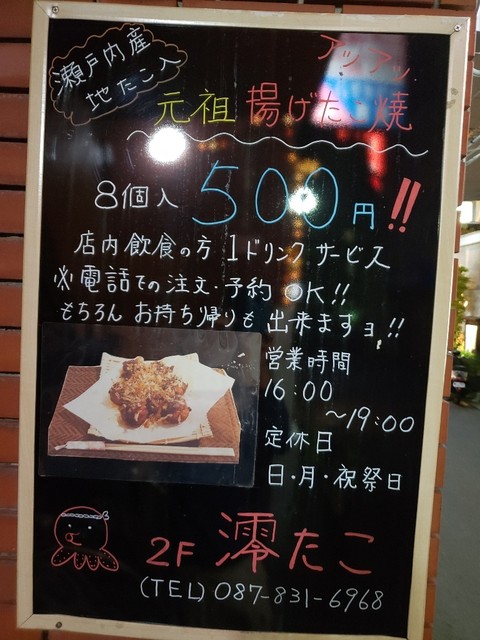 瀬戸内産
地たこ入
アツアツ
元祖 揚げたこ焼
8個入 500円!!
店内飲食の方 1ドリンク サービス
※電話での注文・予約 OK!!
もちろん お持ち帰りも 出来ますョ!!
営業時間
16:00
～19:00
定休日
日・月・祝祭日
2F 澪たこ
(TEL) 087-831-6968